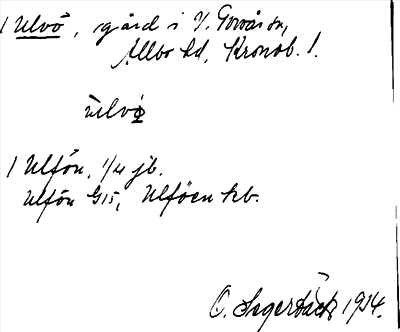 1 Ulvö, gård i V. Torsås sn,
Allbo hd, Kronob. l.
ùlvø
1 Ulfön, 1/4 jb.
Ulfön G15, Ulföen kb.
O. 1914.